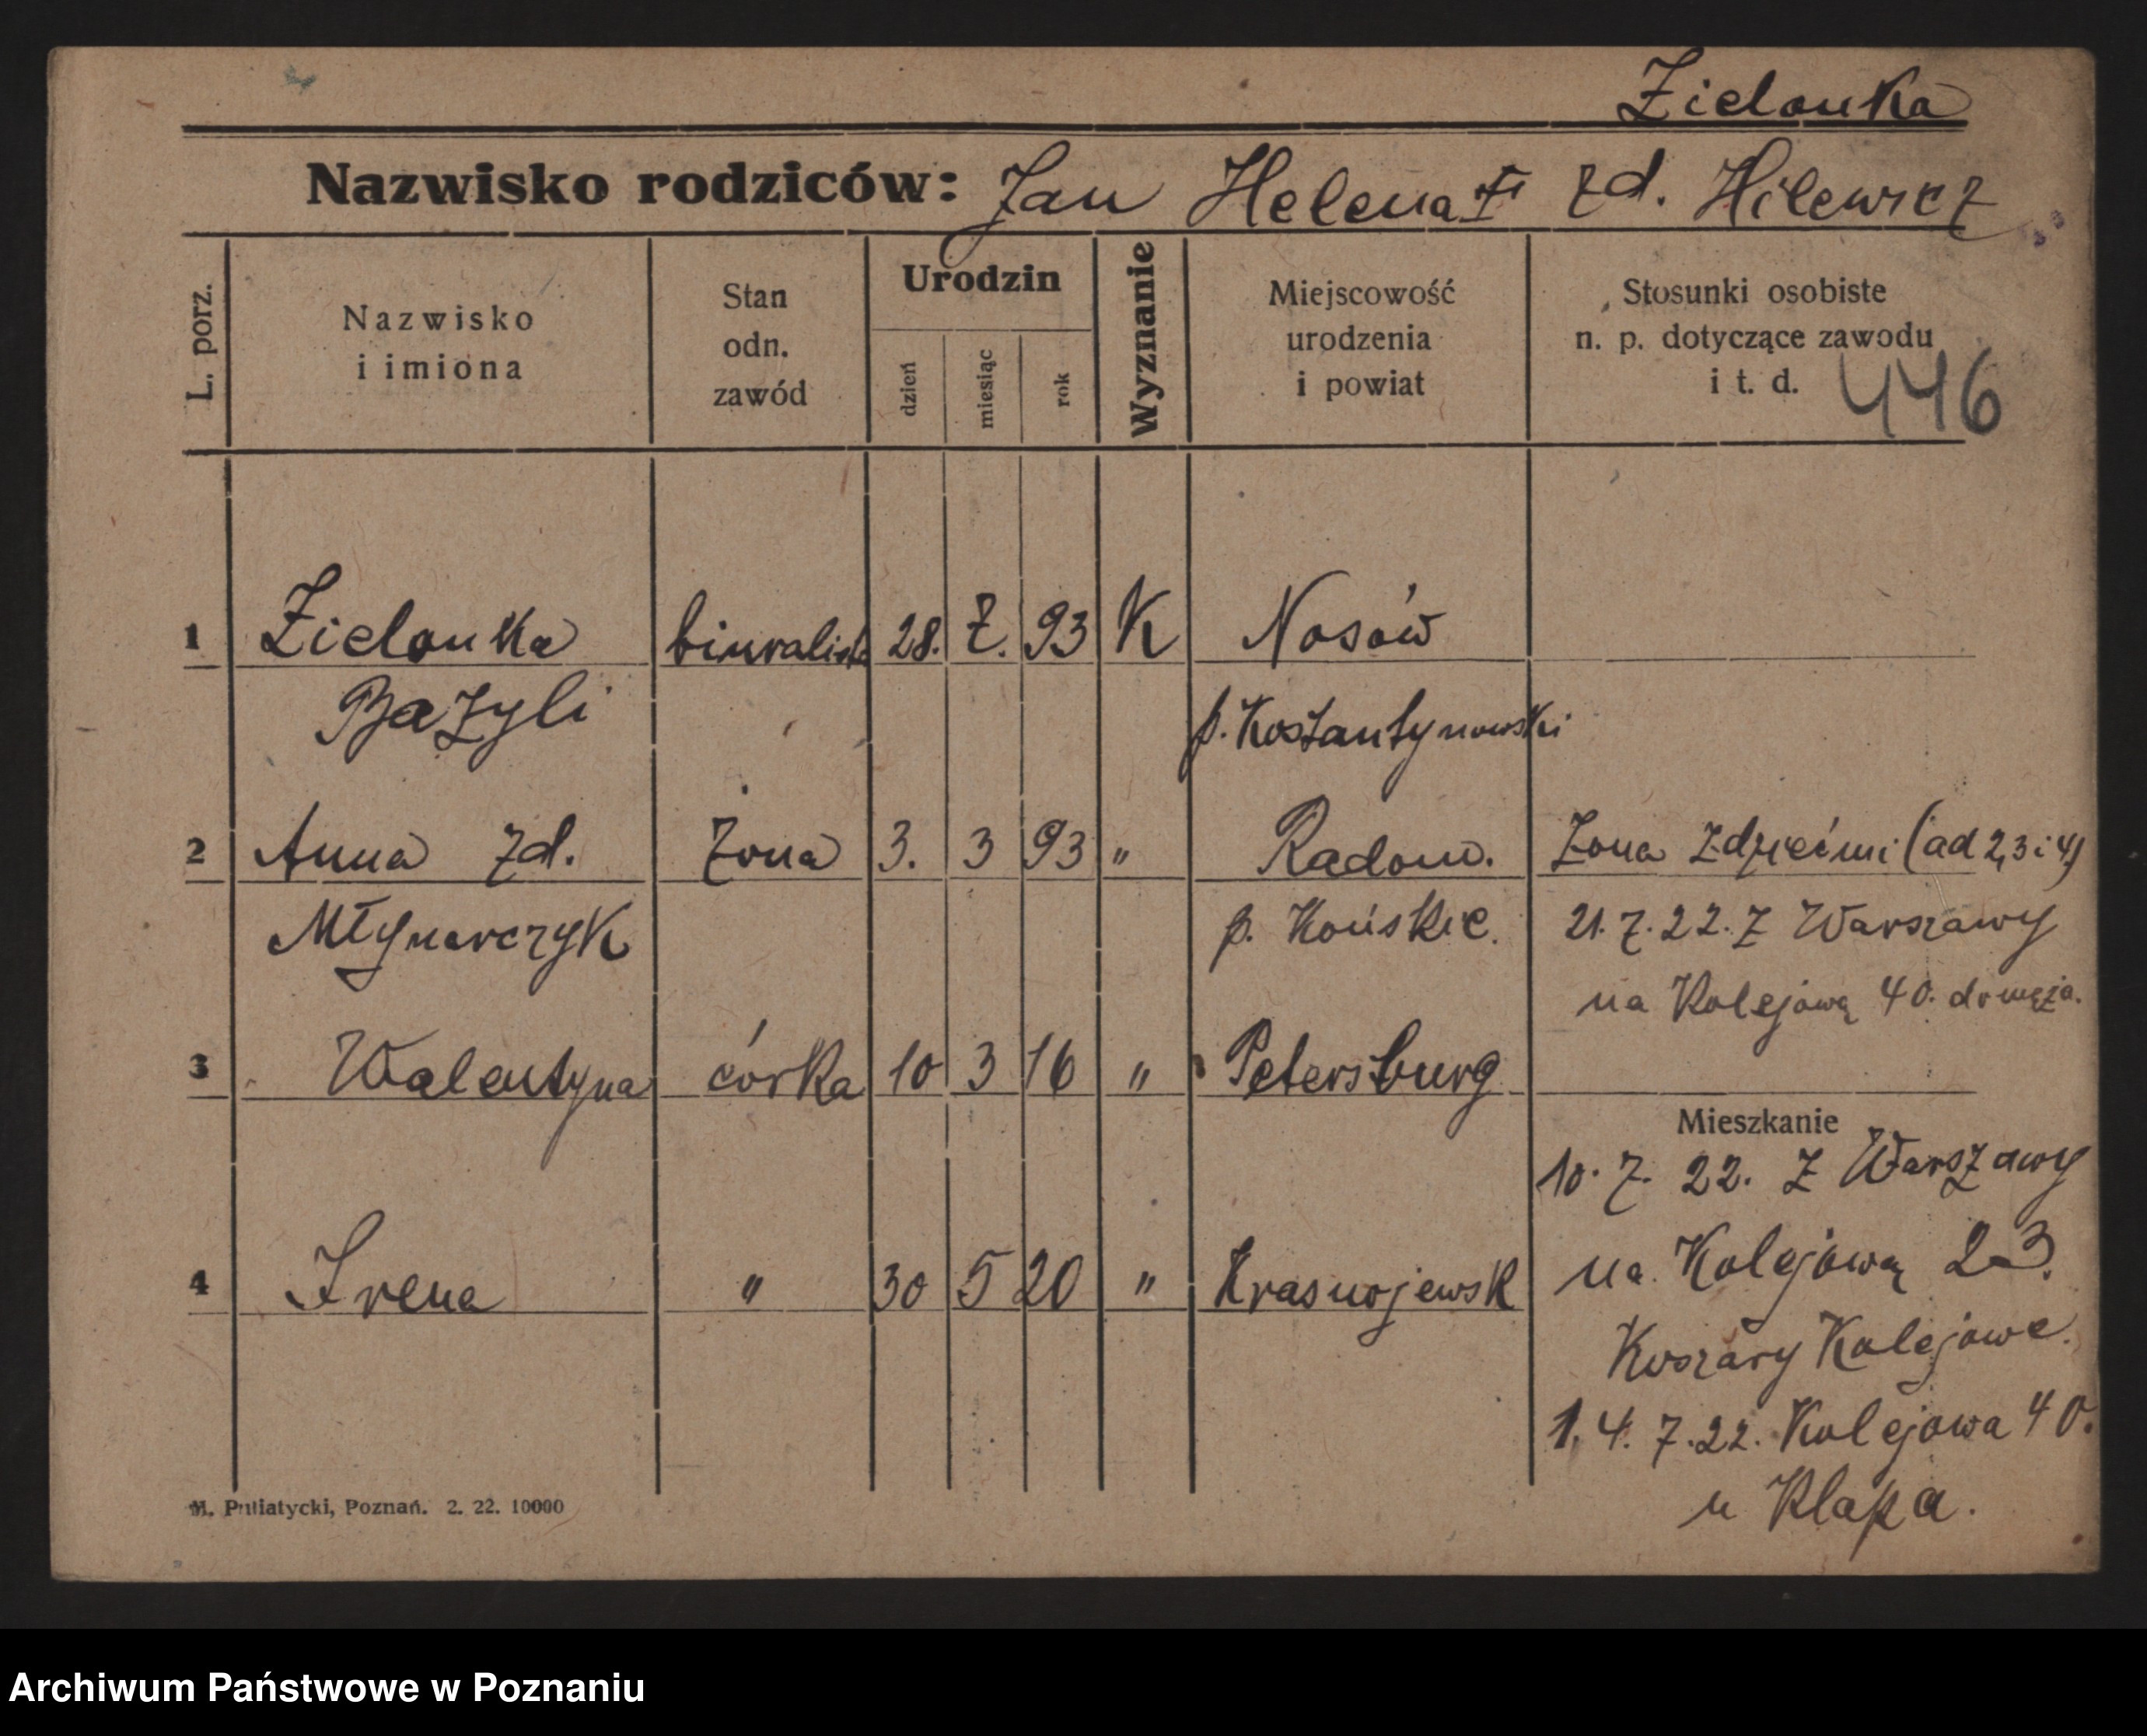 Zielonka
Nazwisko rodziców: Jan Helena zd. Hilewicz
L. porz.
Nazwisko
i imiona
Stan
odn.
zawód
Urodzin
dzień
miesiąc
rok
Wyznanie
Miejscowość
urodzenia
i powiat
Stosunki osobiste
n. p. dotyczące zawodu
i t. d.
446
1 Zielonka biuralista 28. 93 K Nosów
Bazyli p. Kostantynowski
2 Anna zd. żona 3. 3 93 " Radom. Żona z dziećmi (ad 2, 3 i 4)
Młynarczyk p. Końskie. 21. 7. 22. z Warszawy
na Kolejową 40. do męża.
3 Walentyna córka 10 3 16 " Petersburg
Mieszkanie
10. 7. 22. z Warszawy
4 Irena " 30 5 20 " Krasnojewsk na Kolejową 23.
Koszary Kolejowe.
1. 4. 7. 22. Kolejowa 40.
u Klapa.
M. Putiatycki, Poznań. 2. 22. 10000
Archiwum Państwowe w Poznaniu